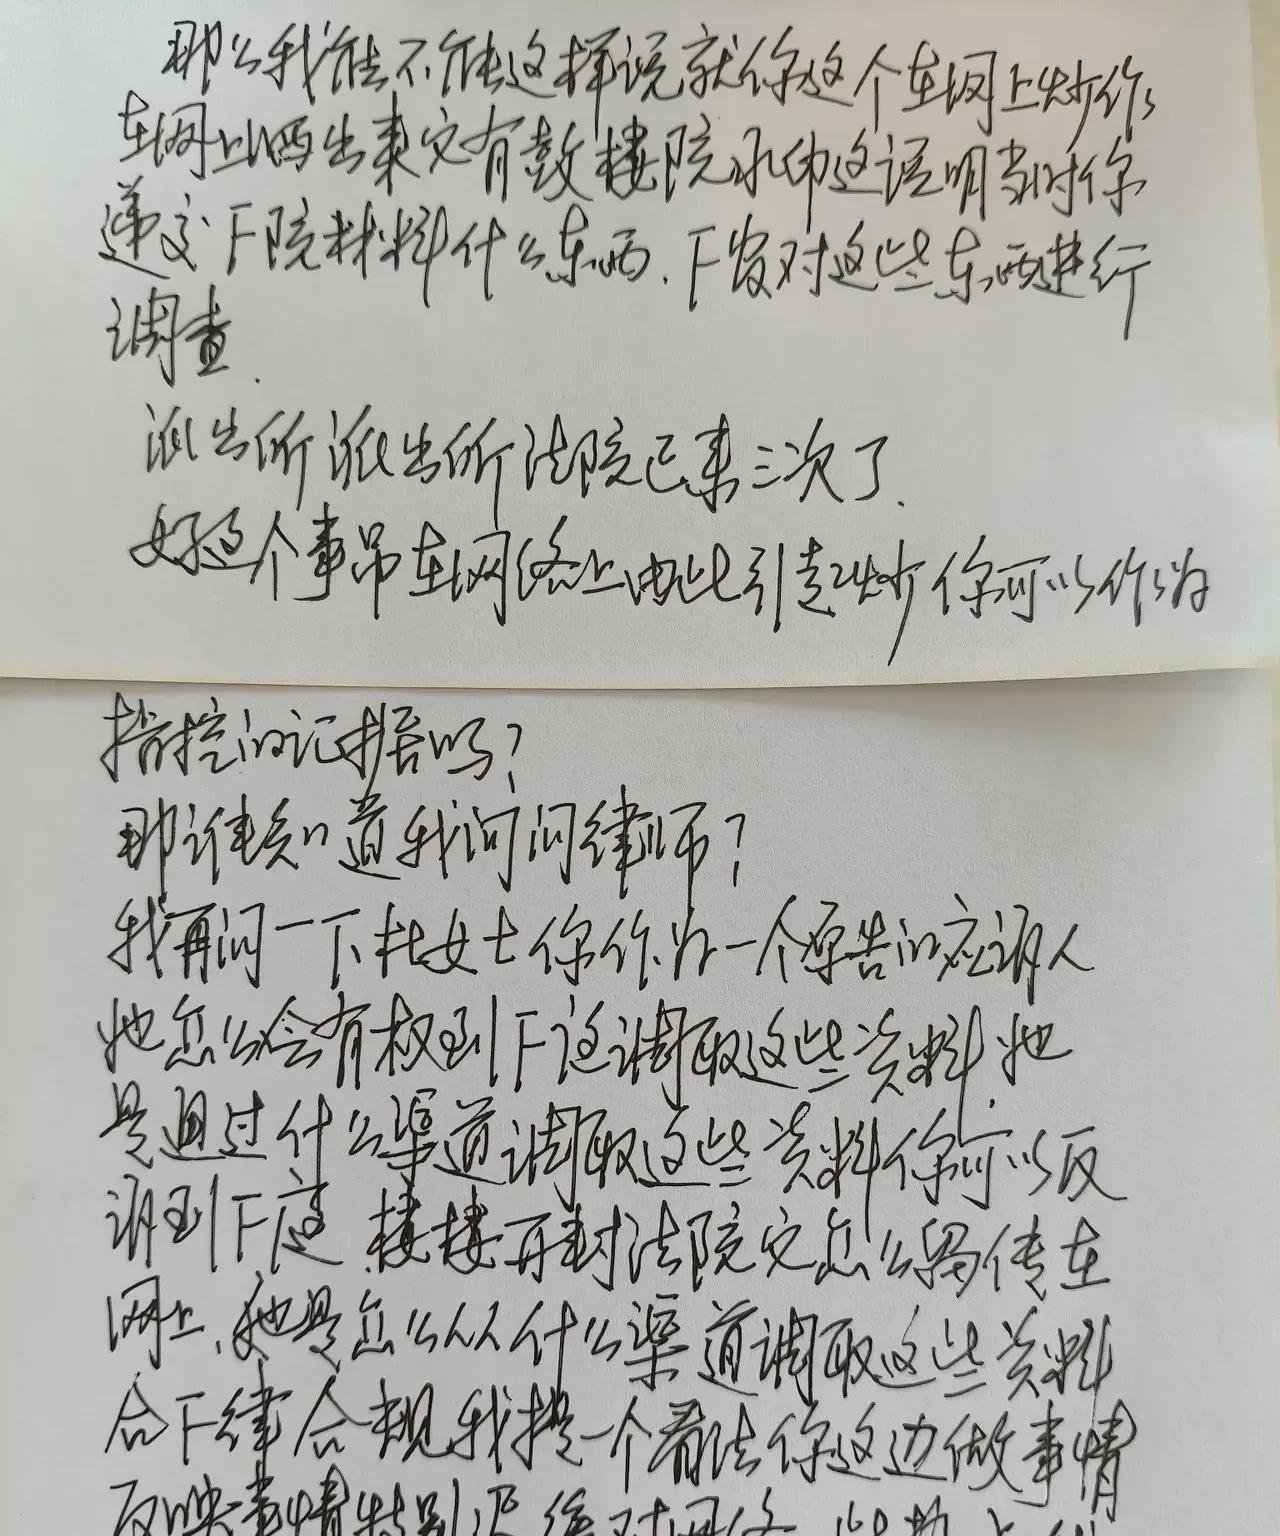 那么我能不能这样说就你这个在网上炒作
在网上晒出来它有鼓楼院水印这说明当时你
递交F院材料什么东西.F官对这些东西进行
调查.
派出所派出所法院已来三次了.
好这个事吊在网络上由此引起炒你可以作为
指控的记据吗?
那谁知道我问问律师?
我再问一下杜女士你作为一个原告的应诉人
她怎么会有权到F这调取这些资料她
是通过什么渠道调取这些资料你可以反
诉到F庭 楼楼再封法院它怎么留传在
网上.她是怎么从什么渠道调取这些资料
合F律合规我提一个看法你这边做事情
反映事情特别迟 对网络